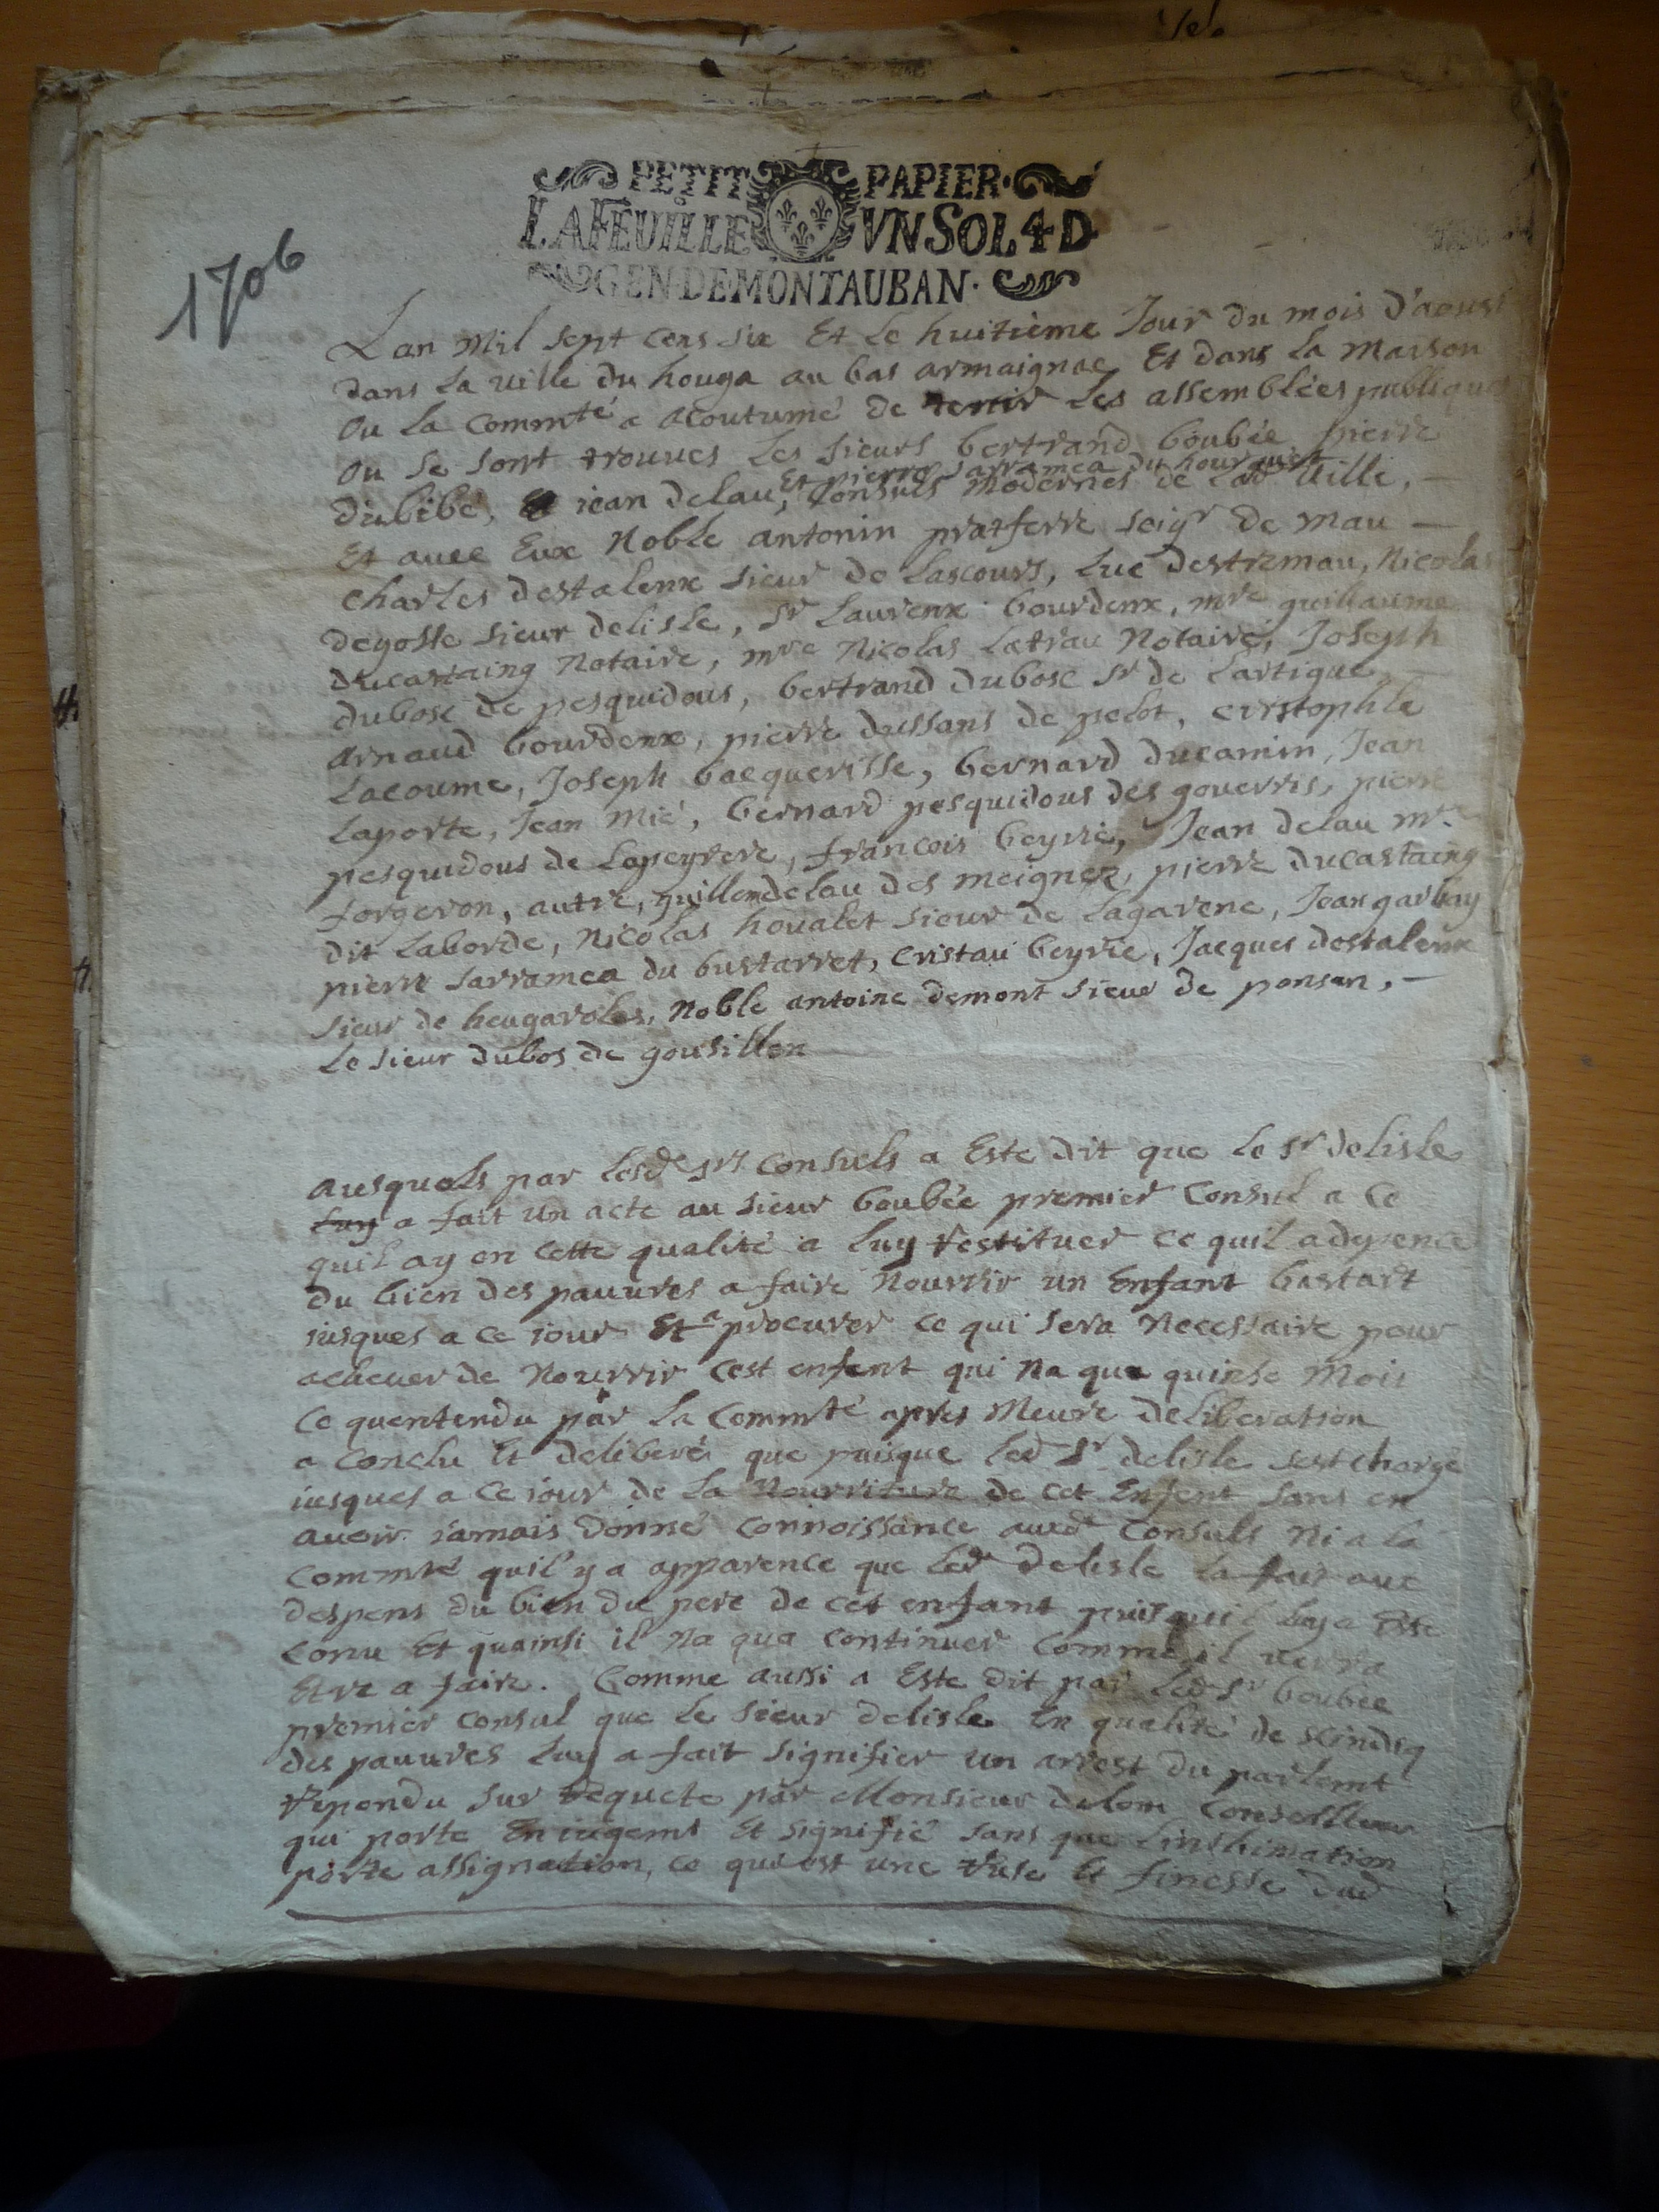 PETIT PAPIER
LA FEUILLE VN SOL 4 D
GEN DE MONTAUBAN
1706
Lan Mil sept cens six Et le huitième Jour du mois d'aoust
dans la ville du houga au bas armaignac Et dans la Maison
Ou la Commté a acoutumé de tenir les assemblées publiques
Ou se sont trouves les sieurs bertrand boubée pierre
Et pierre sarramea du hourquet
dubibé, jean delau, Consuls Modernes de lad Ville,
Et avec Eux Noble antonin pratferré seigr de mau
Charles destalenx sieur de Lascours, luc destremau, Nicolas
degosse sieur delisle, Sr Laurenx bourdenx, mre guillaume
ducastaing Notaire, mre Nicolas Latrau Notaire, Joseph
dubosc de pesquidous, bertrand dubosc Sr de Lartigue
Arnaud bourdenx, pierre dussans de pelot, cristophle
Lacoume, Joseph bacquerisse, bernard ducamin, Jean
Laporte, Jean Mié, bernard pesquidous des gouerris, pierre
pesquidous de Lapeyrere, francois beyrie, Jean delau mre
forgeron, autre, guillem delau des meignez, pierre ducastaing
dit Laborde, Nicolas houalet sieur de Lagarene, Jean garbay
pierre sarramea du bustarret, Cristau beyrie, Jacques destalenx
sieur de heugaroles, Noble antoine demont sieur de ponsan,
Le sieur dubos de gousillon
Ausquels par lesd srs Consuls a Este dit que le sr delisle
luy a fait un acte au sieur boubée premier Consul a Ce
quil ay en Cette qualité a luy restituer Ce quil a depence
du bien des pauvres a faire Nourrir un Enfant bastart
jusques a Ce jour Et a procurer Ce qui sera Necessaire pour
achever de Nourrir Cest enfent qui Na que quinse Mois
Ce quentendu par la Commté apres Meure deliberation
a Conclu Et deliberé que puisque led Sr delisle sest charge
jusques a Ce jour de la Nourriture de Cet Enfent sans en
avoir jamais donné Connoissance ausd Consuls Ni a la
Commté quil y a apparence que led delisle la fait aux
despens du bien du pere de Cet enfant puisquil luy a Este
Conu Et quainsi il Na qua Continuer Comme il verra
Etre a faire. Comme aussi a Este dit par led Sr boubee
premier Consul que le sieur delisle En qualité de scindiq
des pauvres luy a fait signifier un arrest du parlemt
repondu sur requete par Monsieur delom Conseilleur
qui porte En jugemt Et signifié sans que linthimation
porte assignation, Ce qui est une ruse Et finesse dud